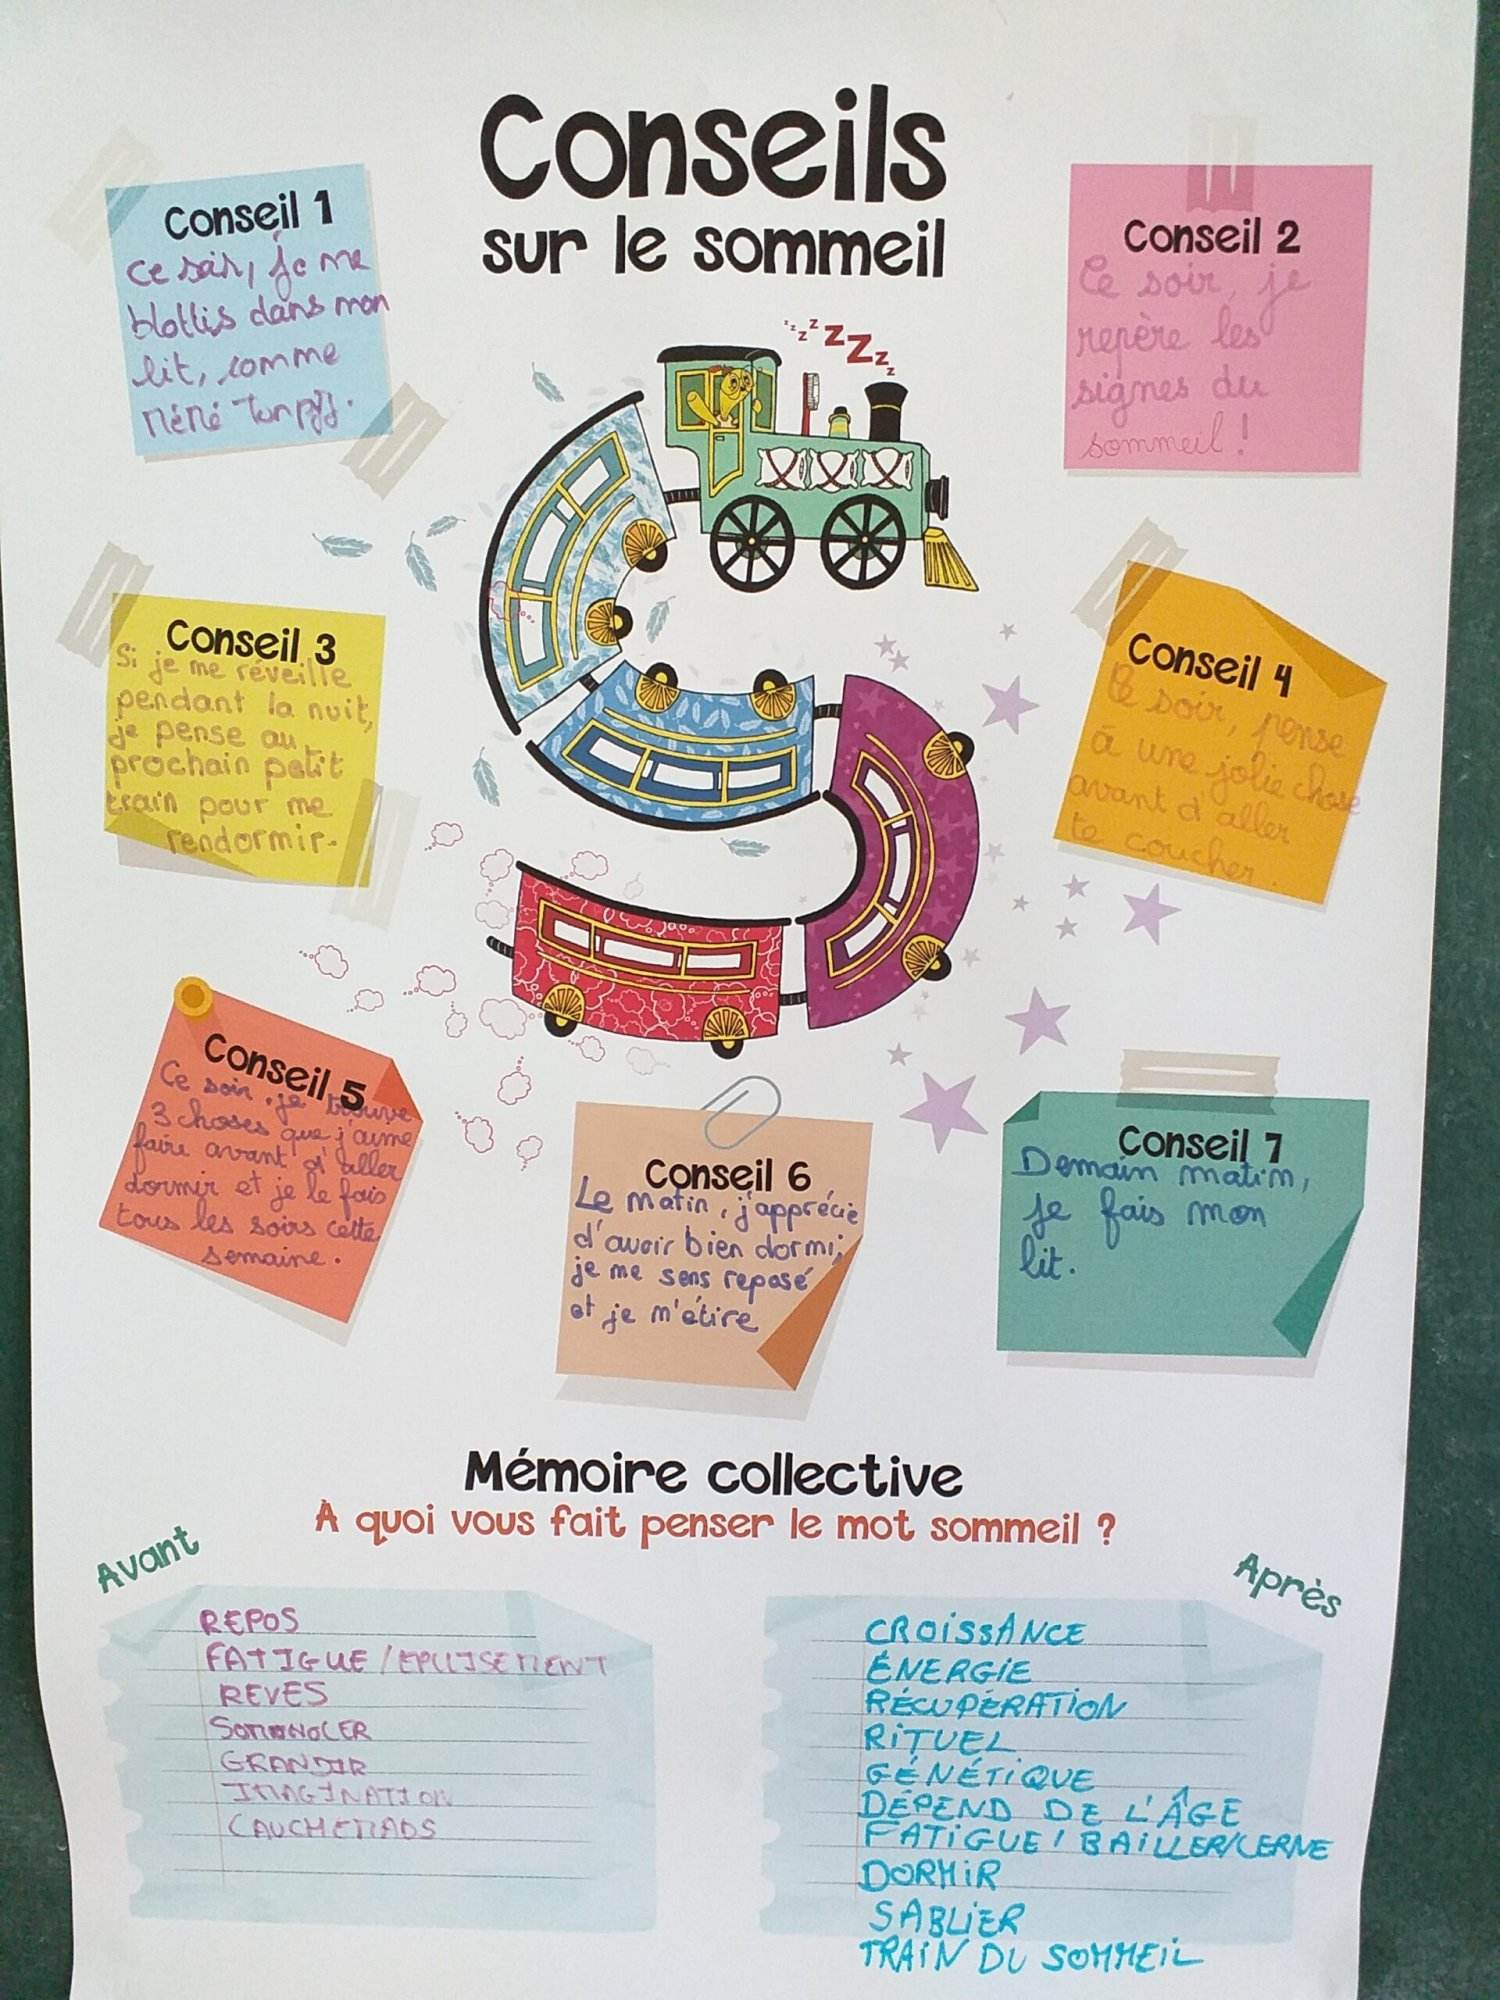 Conseils
sur le sommeil
Conseil 1
Ce soir, je me
blottis dans mon
lit, comme
Conseil 2
Ce soir, je
repère les
signes du
sommeil !
zzzzZZzz
Conseil 3
Si je me réveille
pendant la nuit,
je pense au
prochain petit
train pour me
rendormir.
Conseil 4
Ce soir, pense
à une jolie chose
avant d'aller
te coucher.
Conseil 5
Ce soir, je trouve
3 choses que j'aime
faire avant d'aller
dormir et je le fais
tous les soirs cette
semaine.
Conseil 6
Le matin, j'apprécie
d'avoir bien dormi;
je me sens reposé
et je m'étire
Conseil 7
Demain matin,
je fais mon
lit.
Mémoire collective
A quoi vous fait penser le mot sommeil ?
Avant
REPOS
FATIGUE / EPUISEMENT
REVES
GRANDIR
IMAGINATION
Après
CROISSANCE
ÉNERGIE
RÉCUPÉRATION
RITUEL
GÉNÉTIQUE
DÉPEND DE L'ÂGE
FATIGUE / BAILLER/CERNE
DORMIR
SABLIER
TRAIN DU SOMMEIL